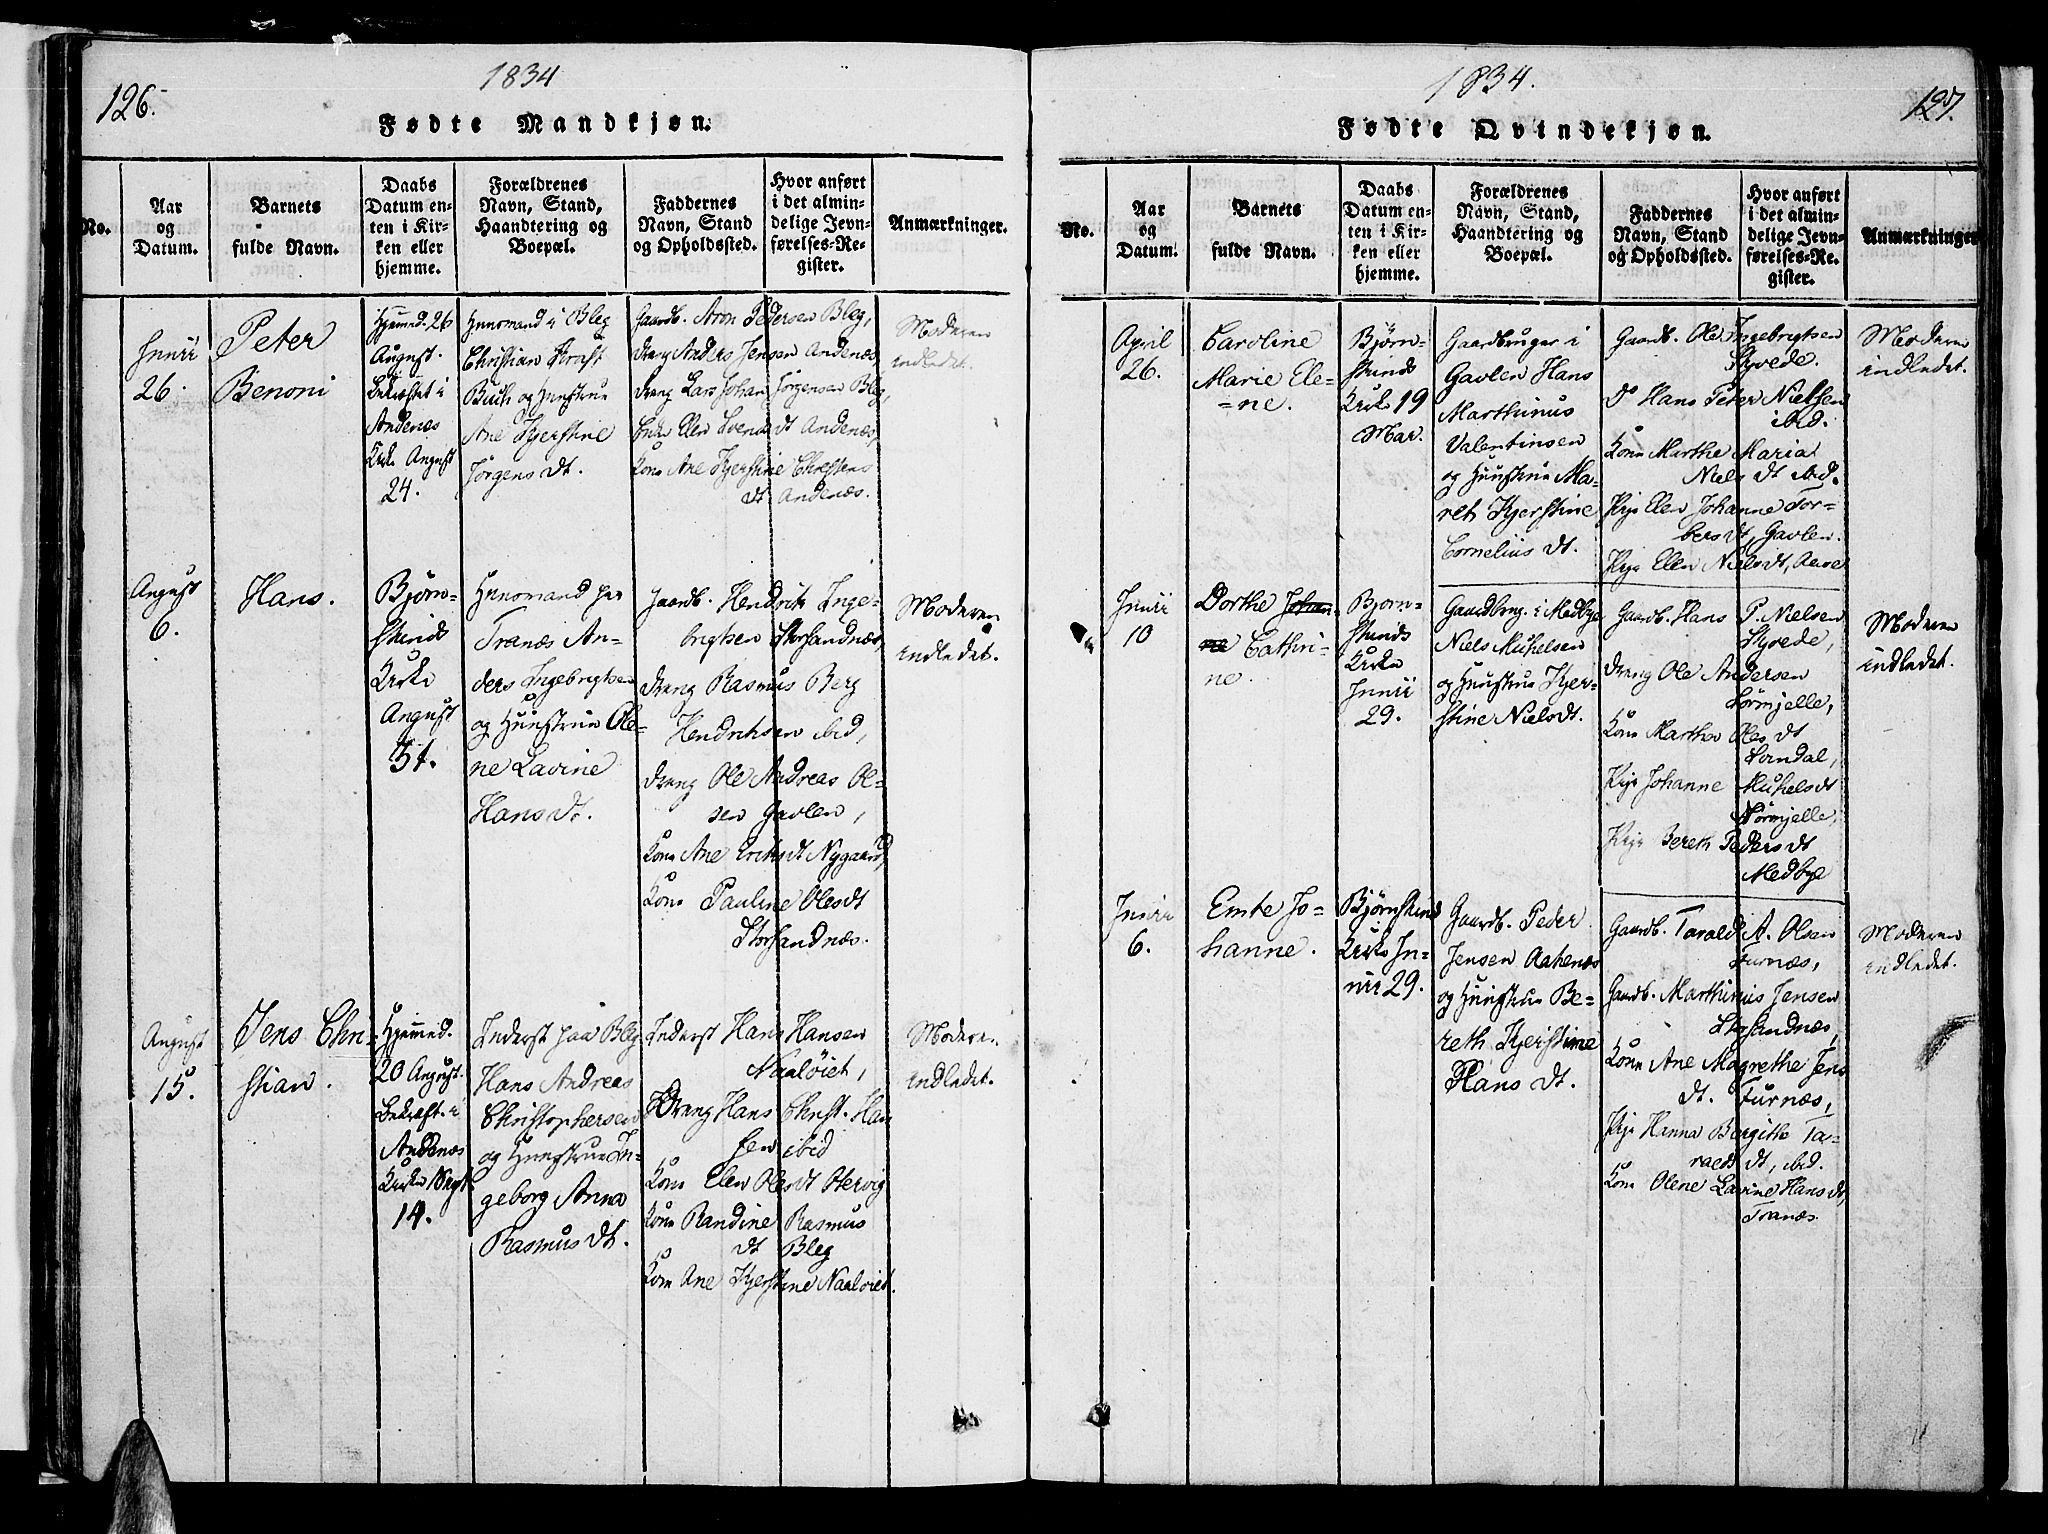 126.
1834
Fødte Mandkjøn.
No.
Aar
og
Datum.
Barnets
fulde Navn.
Daabs
Datum en-
ten i Kir-
ken eller
hjemme.
Forældrenes
Navn, Stand,
Haandtering og
Boepæl.
Faddernes
Navn, Stand
og Opholdssted.
Hvor anført
i det almin-
delige Jevn-
førelses-Re-
gister.
Anmærkninger.
Junii
26.
Peter
Benoni
Hjemmed. 26
August.
Bekræftet i
Andenæs
Kirke August
24.
Huusmand i Bleg
Christian
Buch og Huustrue
Ane Kjerstine
Jörgens dt.
Gaardb. Aron Pedersen Bleg,
Dreng Anders Jensen Andenæs,
Dreng Lars Johan Jörgensen Bleg,
Enke Ellen Svends dt Andenæs,
Kone Ane Kjerstine Christens
dt Andenæs.
Moderen
indledet.
August
6.
Hans.
Björn-
skinds
Kirke
August
31.
Huusmand paa
Tranæs An-
ders Ingebrigtsen
og Huustrue Ole-
ne Lavine
Hans dt.
Gaardb. Hendrik Inge-
brigtsen Storsandnæs,
Dreng Rasmus Berg
Hendriksen ibid,
Dreng Ole Andreas Ol-
sen Gavlen,
Kone Ane Eriks dt Nygaard,
Kone Pauline Oles dt
Storsandnæs.
Moderen
indledet.
August
15.
Jens Chri-
stian.
Hjemmed.
20 August.
Bekræft. i
Andenæs
Kirke Sept
14.
Inderst paa Bleg
Hans Andreas
Christophersen
og Huustrue In-
geborg Anna
Rasmus dt.
Inderst Hans Hansen
Naalöiet,
Dreng Hans Christ. Han
sen ibid
Kone Elen Oles dt
Kone Randine Rasmus
dt Bleg
Kone Ane Kjerstine Naalöiet.
Moderen
indledet.
1834.
127.
Fødte Qvindekjøn.
No.
Aar
og
Datum.
Barnets
fulde Navn.
Daabs
Datum en-
ten i Kir-
ken eller
hjemme.
Forældrenes
Navn, Stand,
Haandtering og
Boepæl.
Faddernes
Navn, Stand
og Opholdssted.
Hvor anført
i det almin-
delige Jevn-
førelses-Re-
gister.
Anmærkninger
April
26.
Caroline
Marie Ele-
=ne.
Björn-
skinds
Kirke 19
Mar.
Gaardbruger i
Gavlen Hans
Marthinus
Valentinsen
og Huustrue Ma-
reth Kjerstine
Cornelius dt.
Gaardb. Ole Ingebrigtsen
Skjvede.
Do Hans Peter Nielsen
ibid.
Kone Marthe Maria
Niels dt ibid.
Pige Elen Johanne Tor-
bers dt, Gavlen.
Pige Ellen Niels dt,
Moderen
indledet.
Junii
10
Dorthe Johan-
ne Cathri-
ne.
Björn-
skinds
Kirke
Junii
29.
Gaardbrug. i Medbye
Niels Mikelsen
og Huustrue Kjer-
stine Niels dt.
Gaardb. Hans P. Nielsen
Skjvede,
Dreng Ole Andersen
Sörmjelle,
Kone Marthe Oles dt
Dorndal,
Pige Johanne Mikels dt
Sörmjelle,
Pige Bereth Peders dt
Medbye
Moderen
indledet.
Junii
6.
Emte Jo-
hanne.
Björnskinds
Kirke Ju-
nii 29.
Gaardb. Peder
Jensen Aakenæs
og Huustrue Be-
reth Kjerstine
Hans dt.
Gaardb. Tarald A. Olsen
Furnæs,
Gaardb. Marthinus Jensen
Storsandnæs,
Kone Ane Magrethe Jens
dt. Furnæs,
Pige Hanna Bergithe Ta-
ralds dt, ibid.
Kone Olene Lavine Hans dt,
Tranæs.
Moderen
indledet.